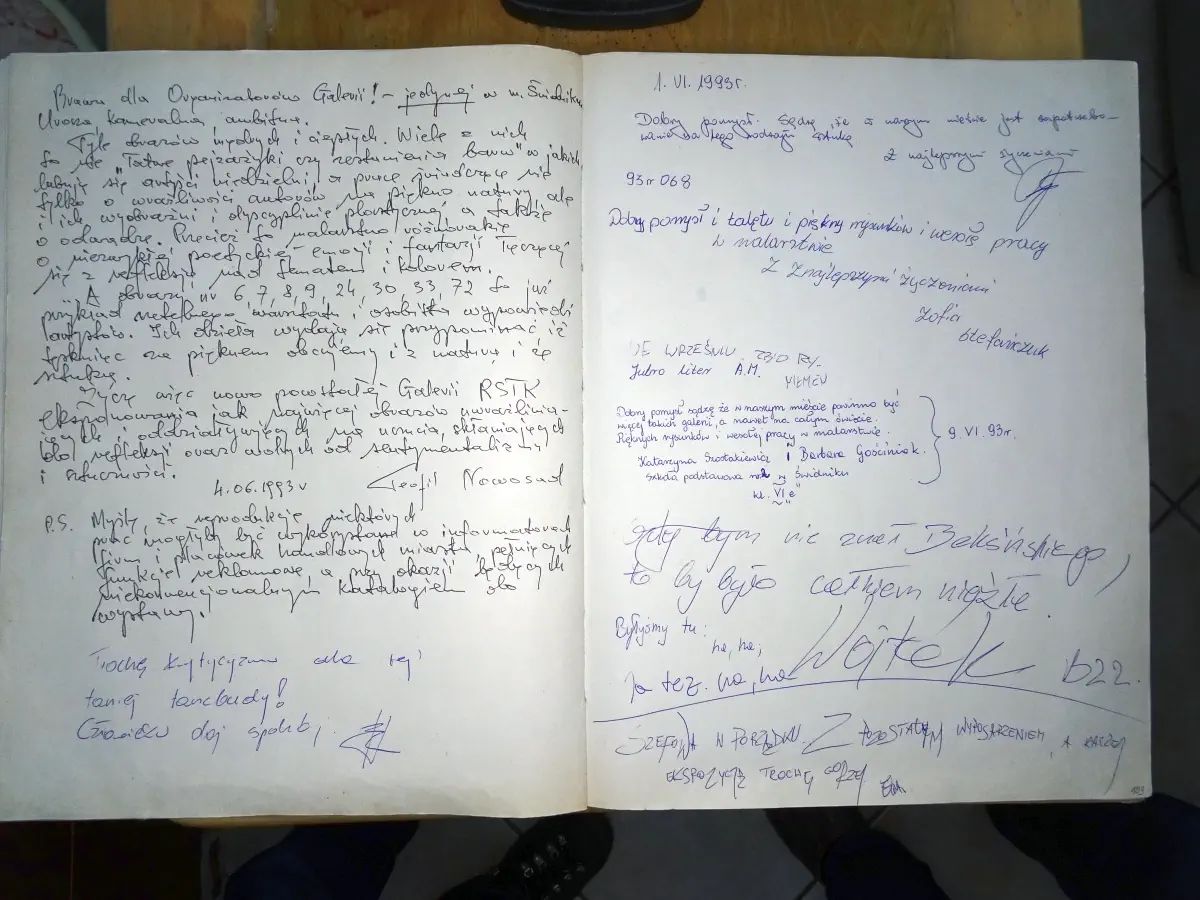 Brawa dla Organizatorów Galerii! - jedynej w m. Świdniku
Urocza kameralna ambitna.
Tyle obrazów mądrych i ciepłych. Wiele z nich
to nie "Tatuę pejzażyki czy zestawienia barw" w jakich
lubują się artyści niedzielni, a prace świadczące nie
tylko o wrażliwości autorów na piękno natury ale
i ich wyobraźni i dyscyplinie plastycznej a także
o odwadze. Przecież to malarstwo różnorakie
o nierzadkiej poetyckiej emocji i fantazji łączącej
się z refleksją nad tematem i kolorem.
A obrazy nr 6, 7, 8, 9, 24, 30, 33, 72 to już
przykład rzetelnego warsztatu i osobista wypowiedź
artystów. Ich dzieła wydają się przypominać iż
tęskniąc za pięknem obcujemy i z naturą i ze
sztuką.
Życzę więc nowo powstałej Galerii RSTK
eksponowania jak najwięcej obrazów uwrażliwia-
jących i oddziaływujących na uczucia, skłaniających
do refleksji oraz wolnych od sentymentalizmu
i sztuczności.
4.06.1993 r Teofil Nowosad
P.S. Myślę, że reprodukcje niektórych
prac mogłyby być wykorzystane w informatorach
firm i placówek handlowych miasta pełniących
funkcję reklamową a przy okazji będących
niekonwencjonalnym katalogiem do
wystawy.
Trochę krytycyzmu dla tej
taniej tancbudy!
Człowieku daj spokój
1. VI. 1993r.
Dobry pomysł. Sądzę, że w naszym mieście jest zapotrzebo-
wanie na tego rodzaju sztukę
Z najlepszymi życzeniami
93 r 068
Dobry pomysł i talętu i piękny rysunków i wesołę pracy
w malarstwie
Z Znajlepszymi Życzeniami
Zofia
Stefańczuk
WE WRZEŚNIU
Jutro liter A.M.
Dobry pomysł sądzę że w naszym mieście powinno być
więcej takich galerii, a nawet na całym świecie.
Pięknych rysunków i wesołej pracy w malarstwie.
Katarzyna Szostakiewicz i Barbara Gościniak.
9. VI. 93r.
Szkoła podstawowa nr 2 w Świdniku
kl. VI "e"
gdy bym nie znał Beksińskiego,
to by było całkiem nieźle.
Byłyśmy tu:
ha, ha,
Ja też. ha, ha
Wojtek
SZEFOWA W PORZĄDKU Z POZOSTAŁYM WYPOSARZENIEM, A RACZEJ
EKSPOZYCJĄ TROCHĘ GORZEJ